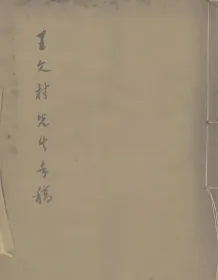 王文村先生手稿